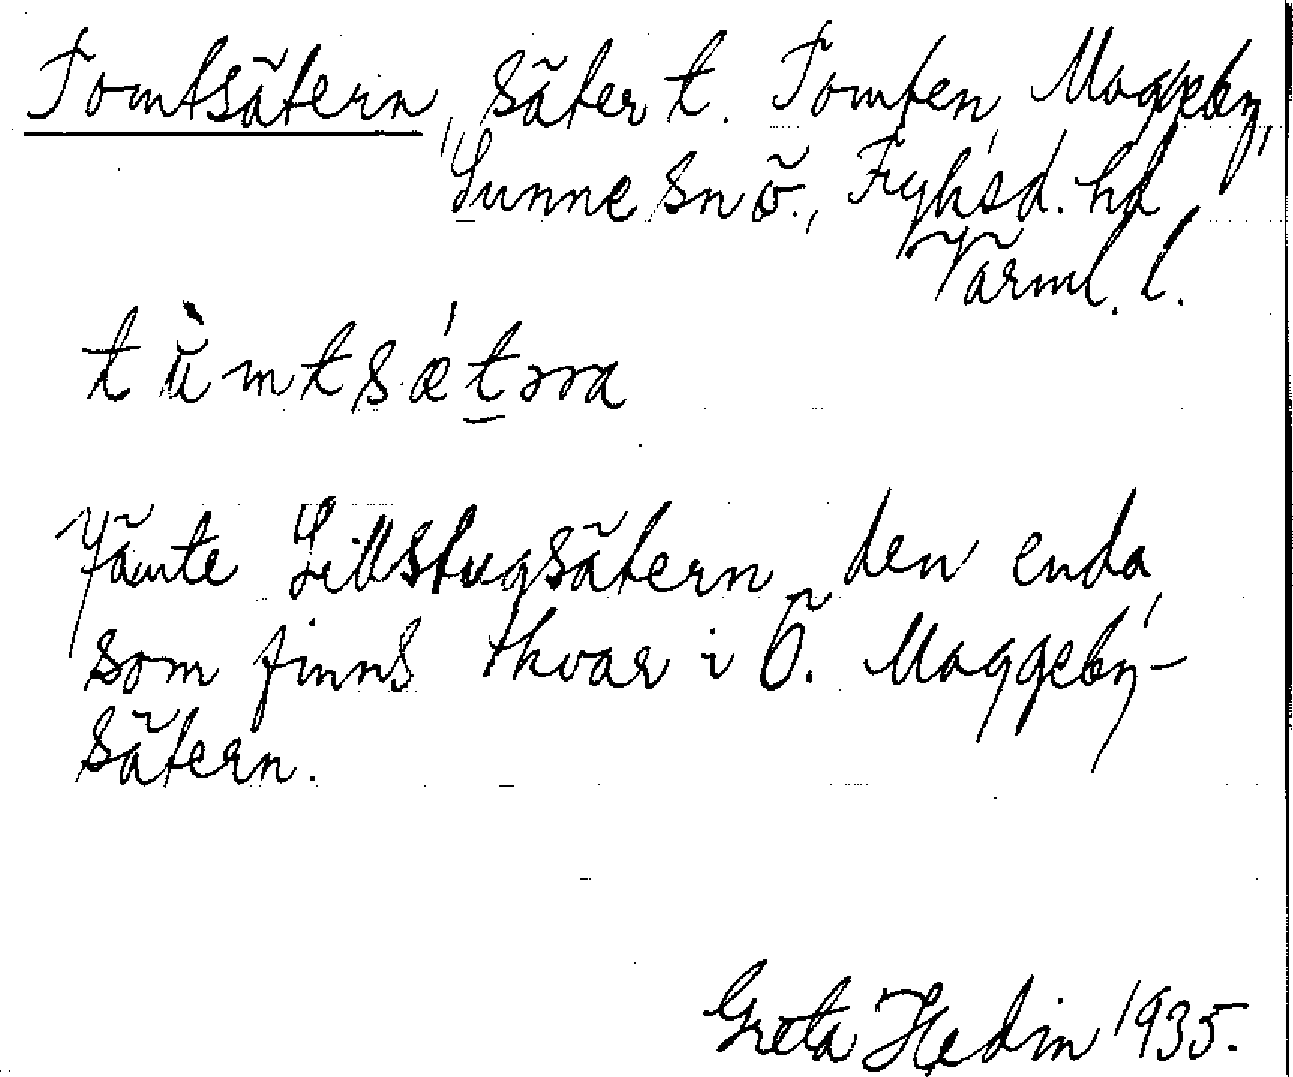 Tomtsätern, säter t. Tomten, Maggeby,
Sunne sn ö., Fryksd. hd
Värml. l.
tùmtsǽtəra
Jämte Lillstugsätern den enda,
som finns kvar i Ö. Maggeby-
sätern.
Greta Hedin 1935.